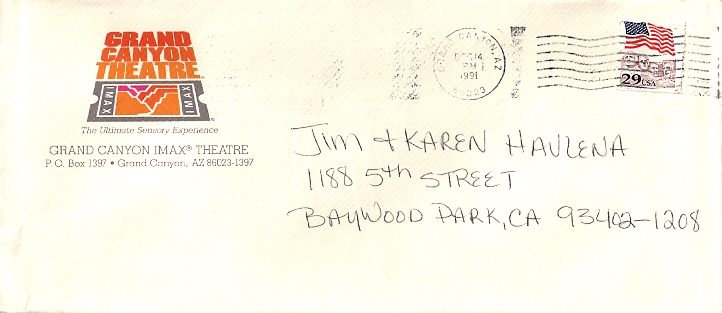 GRAND
CANYON
THEATRE
IMAX
IMAX
The Ultimate Sensory Experience
GRAND CANYON IMAX® THEATRE
P.O. Box 1397 • Grand Canyon, AZ 86023-1397
GRAND CANYON, AZ
DEC 14
PM
1991
86023
29 USA
Jim + KAREN HAVLENA
1188 5th STREET
BAYWOOD PARK, CA 93402-1208